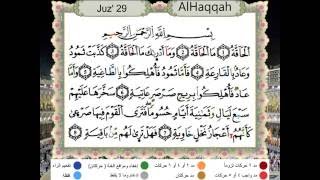 Juz' 29 AlHaqqah
بِسْمِ اللَّهِ الرَّحْمَنِ الرَّحِيمِ
الْحَاقَّةُ ۝١ مَا الْحَاقَّةُ ۝٢ وَمَا أَدْرَاكَ مَا الْحَاقَّةُ ۝٣ كَذَّبَتْ ثَمُودُ
وَعَادٌ بِالْقَارِعَةِ ۝٤ فَأَمَّا ثَمُودُ فَأُهْلِكُوا بِالطَّاغِيَةِ ۝٥ وَأَمَّا
عَادٌ فَأُهْلِكُوا بِرِيحٍ صَرْصَرٍ عَاتِيَةٍ ۝٦ سَخَّرَهَا عَلَيْهِمْ
سَبْعَ لَيَالٍ وَثَمَانِيَةَ أَيَّامٍ حُسُومًا فَتَرَى الْقَوْمَ فِيهَا صَرْعَى
كَأَنَّهُمْ أَعْجَازُ نَخْلٍ خَاوِيَةٍ ۝٧ فَهَلْ تَرَى لَهُمْ مِنْ بَاقِيَةٍ ۝٨